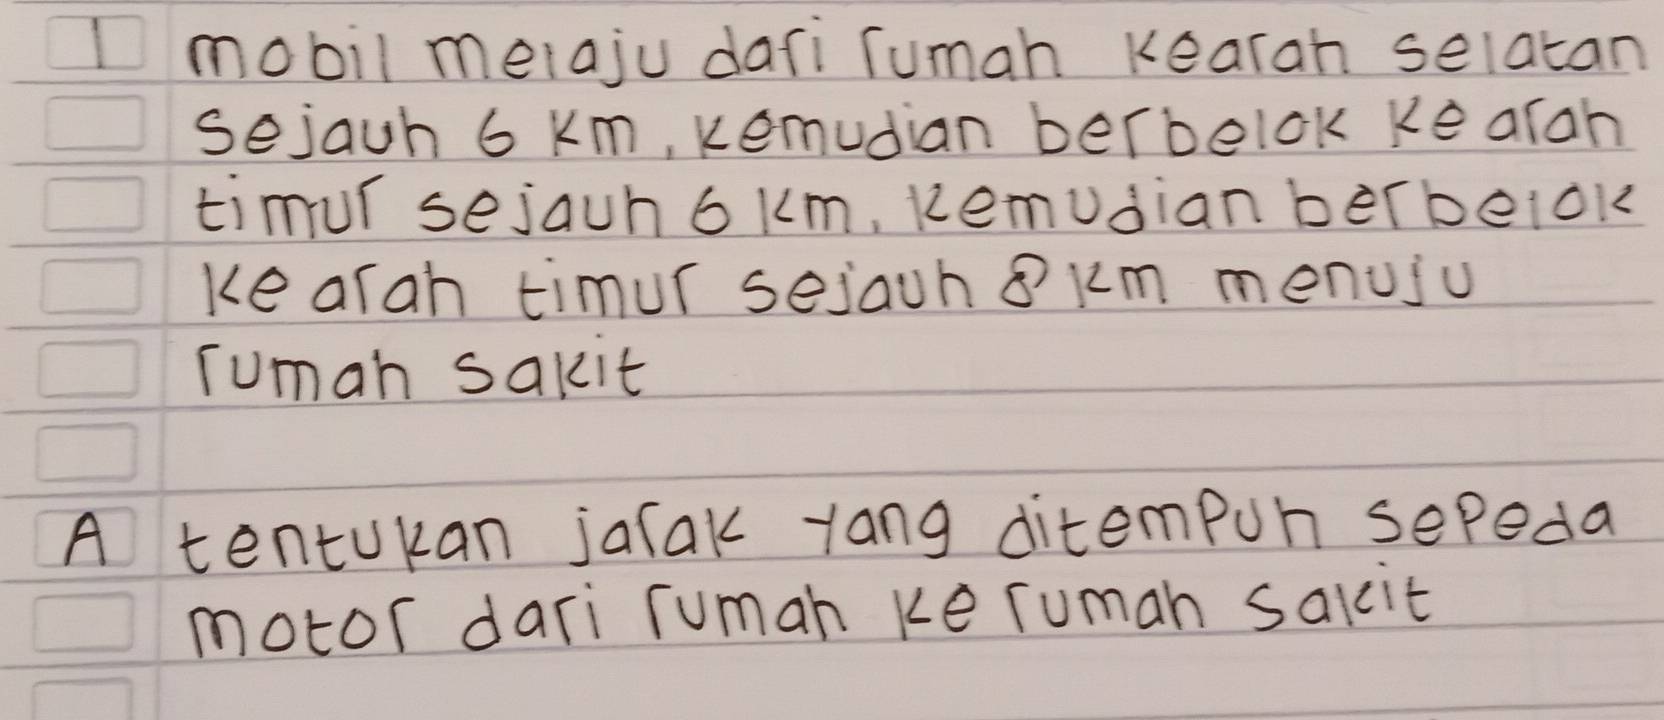 1 mobil melaju dari rumah kearah selatan
sejauh 6 km, kemudian berbelok ke arah
timur sejauh 6 km, kemudian berbelok
ke arah timur sejauh 8 km menuju
rumah sakit
A tentukan jarak yang ditempuh sepeda
motor dari rumah ke rumah sakit